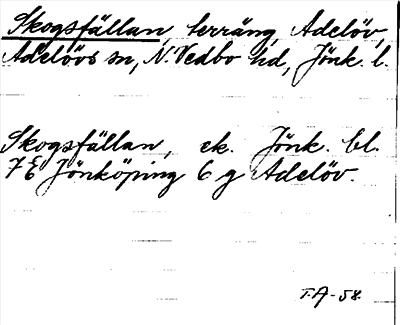 Skogsfällan, terräng, Adelöv,
Adelövs sn, N. Vedbo hd, Jönk. l.
Skogsfällan, ek. Jönk. bl.
7E Jönköping 6 g Adelöv.
T.A-58.